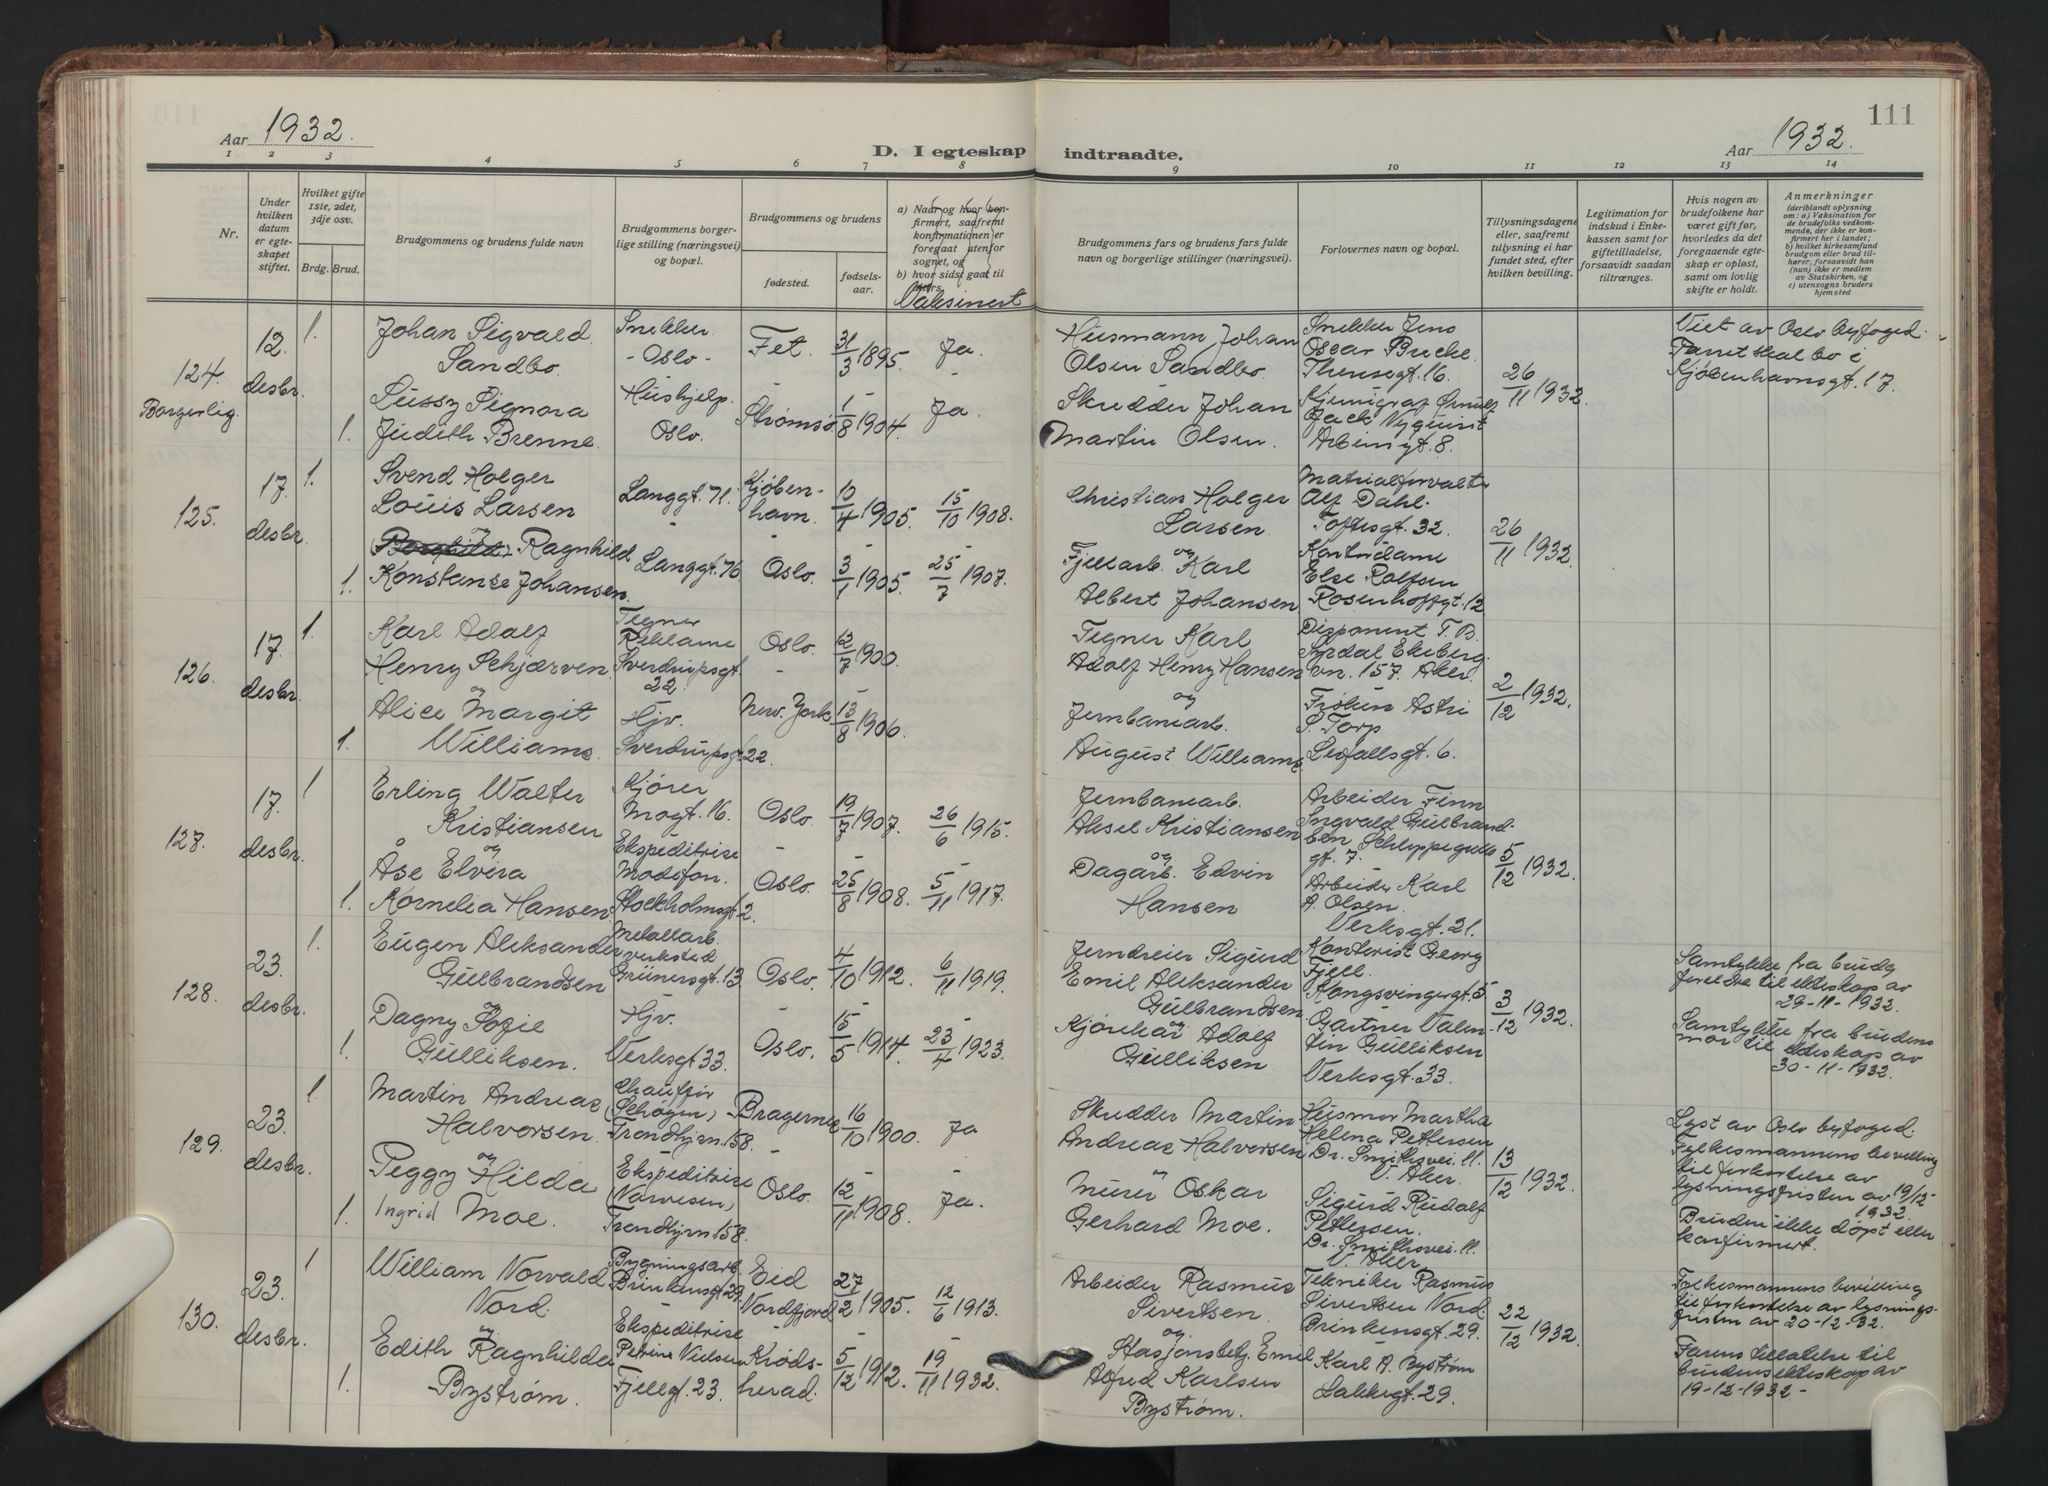 111
Aar 1932.
D. I egteskap
indtraadte.
Aar 1932.
1 2 3 4 5 6 7 8 9 10 11 12 13 14
Nr.
Under
hvilken
datum
er egte-
skapet
stiftet.
Hvilket gifte
1ste, 2det,
3dje osv.
Brdg. Brud.
Brudgommens og brudens fulde navn
Brudgommens borger-
lige stilling (næringsvei)
og bopæl.
Brudgommens og brudens
fødested.
fødsels-
aar.
a) Naar og hvor kon-
firmert, saafremt
konfirmationen er
foregaat utenfor
sognet, og
b) hvor sidst gaat til
alters.
Vaksinert
Brudgommens fars og brudens fars fulde
navn og borgerlige stillinger (næringsvei).
Forlovernes navn og bopæl.
Tillysningsdagene
eller, saafremt
tillysning ei har
fundet sted, efter
hvilken bevilling.
Legitimation for
indskud i Enke-
kassen samt for
giftetilladelse,
forsaavidt saadan
tiltrænges.
Hvis nogen av
brudefolkene har
været gift før,
hvorledes da det
foregaaende egte-
skap er opløst,
samt om lovlig
skifte er holdt.
Anmerkninger
(deriblandt oplysning
om: a) Vaksination for
de brudefolks vedkom-
mende, der ikke er kon-
firmert her i landet;
b) hvilket kirkesamfund
brudgom eller brud til-
hører, forsaavidt han
(hun) ikke er medlem
av Statskirken, og
c) utensogns bruders
hjemsted
124.
Borgerlig
12.
desbr.
1.
Johan Sigvald
Sandbo.
Snekker
- Oslo -
Fet. 31/3 1895. Ja.
1.
Lussy Signora
Judith Brenne.
Hushjelp.
Oslo.
Strømsø 1/8 1904. Ja.
Husmann Johan
Olsen Sandbo.
Skredder Johan
Martin Olsen.
Snekker Jens
Oscar Brecke.
Theresegt. 16.
Jack Nyquist
Arbinsgt. 8.
26/11 1932.
Viet av Oslo byfoged.
Parret skal bo i
Kjøbenhavnsgt. 17.
125.
17.
desbr.
1.
Svend Holger
Louis Larsen
Langgt. 71.
Kjøben-
havn.
10/4 1905. 15/10 1908.
og
(Borghild) Ragnhild
1. Konstanse Johansen.
Langgt. 76 Oslo. 3/1 1905. 25/7 1907.
Christian Holger
Larsen
og
Fjellarb. Karl
Albert Johansen
Matrialforvalter
Alf Dahl.
Toftesgt. 32.
Kontordame
Else Rolfsen
Rosenhoffgt. 12
26/11 1932.
126.
17.
desbr.
1.
Karl Adolf
Henry Schjærven
Tegner
Reklame
Sverdrupsgt.
22.
Oslo. 12/7 1900.
og
Alice Margit
1. Williams.
Hjv.
Sverdrupsgt. 22.
New. York 13/8 1906.
Tegner Karl
Adolf Henry Hansen
og
Jernbanearb.
August Williams
Disponent T. B.
Syrdal Ekeberg-
vn. 157. Aker.
Frøken Astri
S. Torp
Seofallsgt. 6.
2/12 1932.
127.
17.
desbr.
1
Erling Walter
Kristiansen
Kjører
Mogt. 16.
Oslo 19/7 1907. 26/6 1915.
og
Åse Elvira
1. Kornelia Hansen
Ekspeditrise
Modefor.
Stockholmsgt. 2.
Oslo. 25/8 1908. 5/11 1917.
Jernbanearb.
Aksel Kristiansen
og
Dagarb. Edvin
Hansen
Arbeider Finn
Ingvald Gulbrand-
sen Schleppegrells
gt. 7.
Arbeider Karl
A. Olsen.
Verksgt. 21.
5/12 1932.
128.
23.
desbr.
1.
Eugen Aleksander
Gulbrandsen
Metallarb.
verksted
Grünersgt. 13
Oslo. 4/10 1912. 6/11 1919.
og
Dagny Sofie
1. Gulliksen.
Hjv.
Verksgt. 33.
Oslo. 15/5 1914. 23/4 1923.
Jerndreier Sigurd
Emil Aleksander
Gulbrandsen
og
Kjørekar Adolf
Gulliksen
Kontorist Georg
Fjell.
Kongsvingergt. 5
Gartner Valen-
tin Gulliksen
Verksgt. 33.
3/12 1932.
Samtykke fra brudg
foreldre til ekteskap av
29-11-1932.
Samtykke fra brudens
mor til ekteskap av
30-11-1932.
129.
23.
desbr.
1
Martin Andreas
Halvorsen.
Chauffør
(Schøgen)
Trondhjm. 158.
Bragernes 16/10 1900. Ja
og
Peggy Hilda
1. Ingrid Moe.
Ekspeditrise
(Narvesen)
Trondhjm. 158.
Oslo. 12/11 1908. Ja.
Skredder Martin
Andreas Halvorsen
Murer Oskar
Gerhard Moe.
Husmor Martha
Helena Pettersen
Dr. Smithsvei. 11.
V. Aker.
Sigurd Rudolf
Pettersen.
Dr. Smithsvei. 11.
V. Aker.
13/12 1932.
Lyst av Oslo byfoged.
Fylkesmannens bevilling
til forkortelse av
lysningsfristen av 19/12-
1932.
Bruden ikke døpt eller
konfirmert.
130.
23.
desbr.
1
William Norvald
Nord.
Bygningsarb.
Brinkensgt. 29.
Eid
Nordfjord
27/2 1905. 12/6 1913.
og
Edith Ragnhilda
1. Bystrøm.
Ekspeditrise
Petrine Nielsen
Fjellgt. 23.
Krøds-
herad.
5/12 1912. 19/11 1932.
Arbeider Rasmus
Sivertsen.
og
Stasjonsbetj. Emil
Alfred Karlsen
Bystrøm.
Tekniker Rasmus
Sivertsen Nord.
Brinkensgt. 29.
Karl A. Bystrøm
Lakkegt. 29.
22/12 1932.
Fylkesmannens bevilling
til forkortelse av lysnings-
fristen av 20-12-32.
Farens tillatelse til
brudens ekteskap av
19-12-1932-